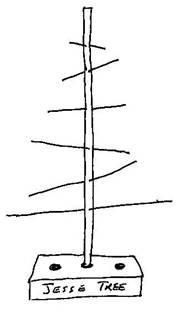 JESSE TREE